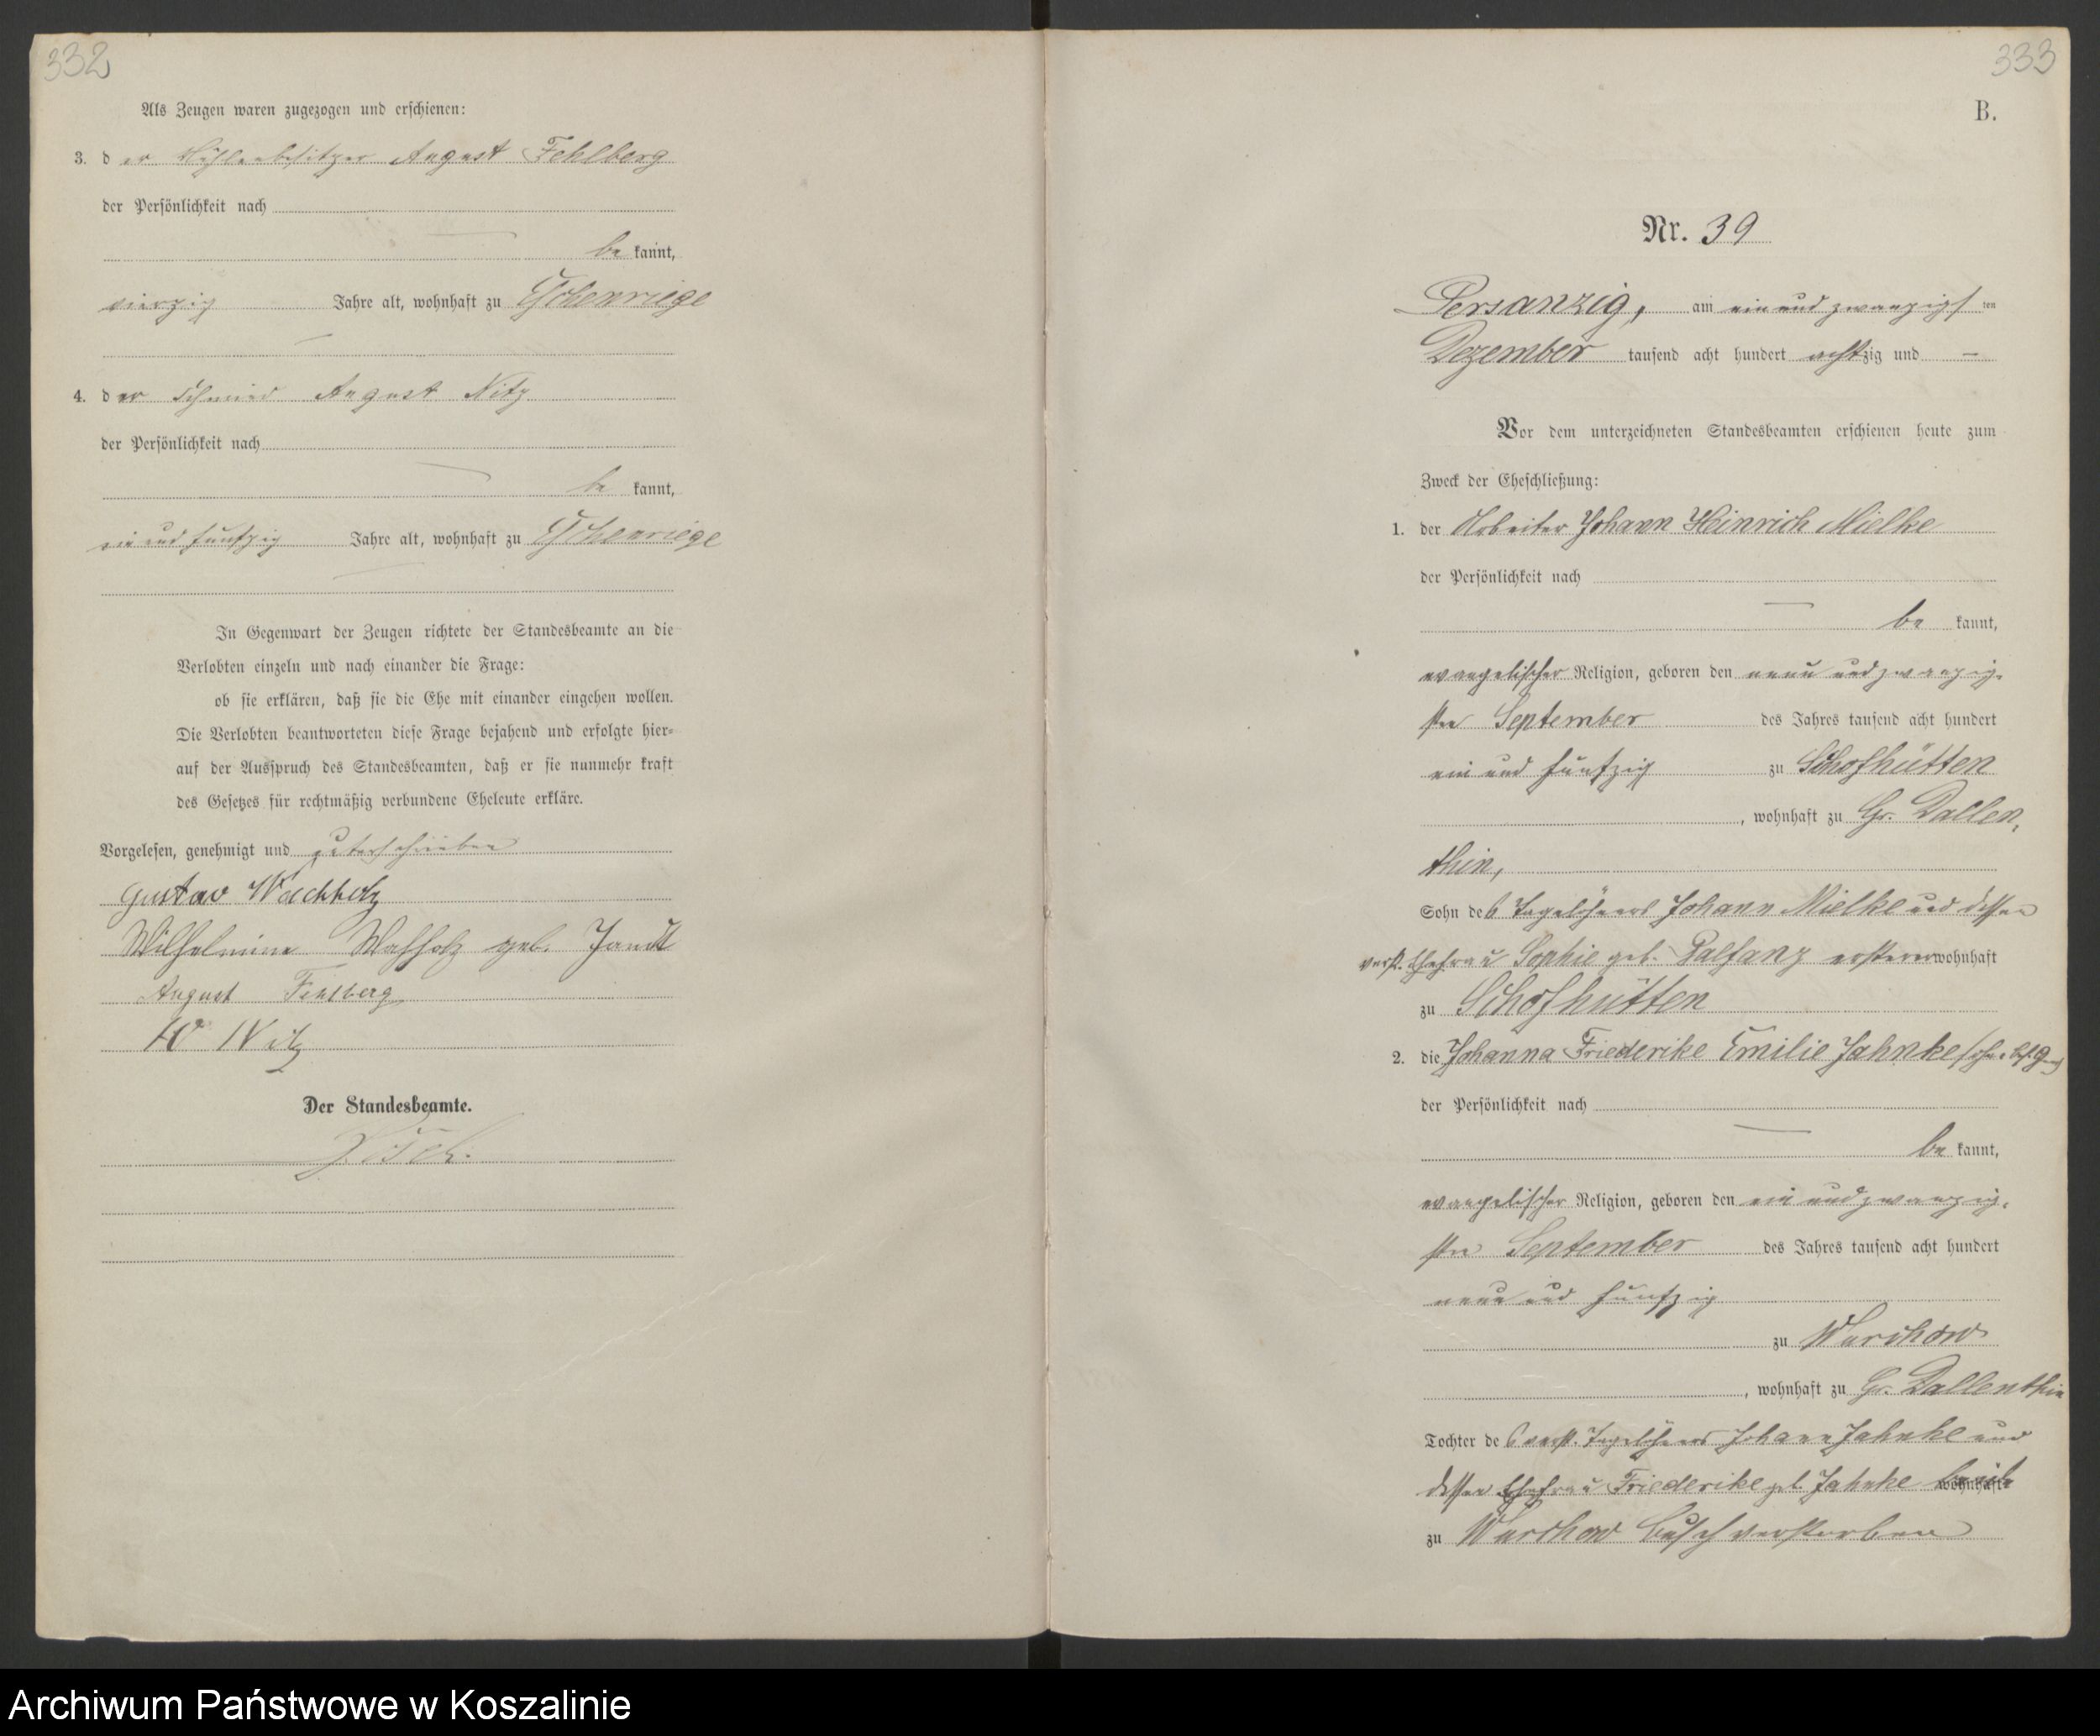 332
Als Zeugen waren zugezogen und erschienen:
3. der Mühlenbesitzer August Fehlberg
der Persönlichkeit nach
be kannt,
vierzig Jahre alt, wohnhaft zu Eschenriege
4. der Schmied August Nitz
der Persönlichkeit nach
be kannt,
ein und fünfzig Jahre alt, wohnhaft zu Eschenriege
In Gegenwart der Zeugen richtete der Standesbeamte an die
Verlobten einzeln und nach einander die Frage:
ob sie erklären, daß sie die Ehe mit einander eingehen wollen.
Die Verlobten beantworteten diese Frage bejahend und erfolgte hier=
auf der Ausspruch des Standesbeamten, daß er sie nunmehr kraft
des Gesetzes für rechtmäßig verbundene Eheleute erkläre.
Vorgelesen, genehmigt und unterschrieben
Gustav Wachholz
Wilhelmine Wachholz geb. Jandt
August Fehlberg
Nitz
Der Standesbeamte.
333
B.
Nr. 39
Persanzig, am ein und zwanzigsten
Dezember tausend acht hundert achtzig und —
Vor dem unterzeichneten Standesbeamten erschienen heute zum
Zweck der Eheschließung:
1. der Arbeiter Johann Heinrich Mielke
der Persönlichkeit nach
be kannt,
evangelischer Religion, geboren den neun und zwanzig-
sten September des Jahres tausend acht hundert
ein und fünfzig zu Schofhütten
, wohnhaft zu Gr. Dallen-
thin,
Sohn des Tagelöhners Johann Mielke und dessen
verst. Ehefrau Sophie geb. Palfanz ersterer wohnhaft
zu Schofhütten
2. die Johanna Friederike Emilie Jahnke
der Persönlichkeit nach
be kannt,
evangelischer Religion, geboren den ein und zwanzig-
sten September des Jahres tausend acht hundert
neun und fünfzig
zu Wurchow
, wohnhaft zu Gr. Dallenthin
Tochter des verst. Tagelöhners Johann Jahnke und
dessen Ehefrau Friederike geb. Jahnke beide wohnhaft
zu Wurchow Busch verstorben
Archiwum Państwowe w Koszalinie